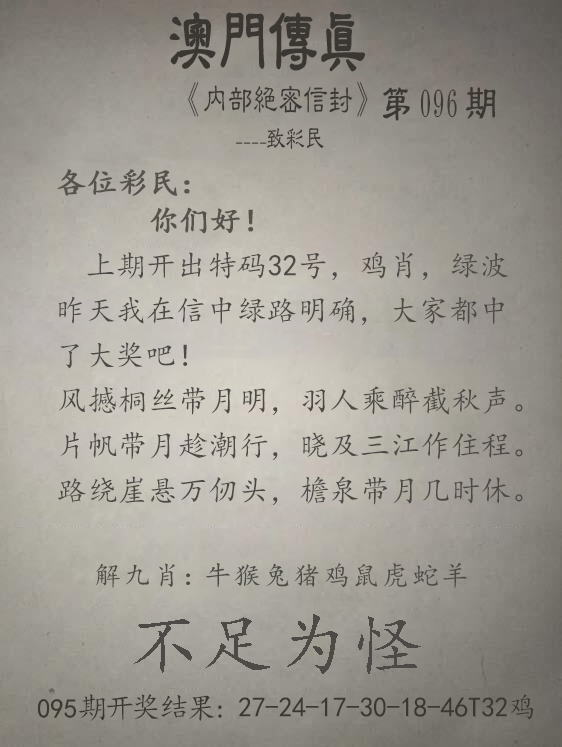 澳門傳真
《内部絕密信封》第096期
----致彩民
各位彩民：
你们好！
上期开出特码32号，鸡肖，绿波
昨天我在信中绿路明确，大家都中
了大奖吧！
风撼桐丝带月明，羽人乘醉截秋声。
片帆带月趁潮行，晓及三江作住程。
路绕崖悬万仞头，檐泉带月几时休。
解九肖：牛猴兔猪鸡鼠虎蛇羊
不足为怪
095期开奖结果：27-24-17-30-18-46T32鸡